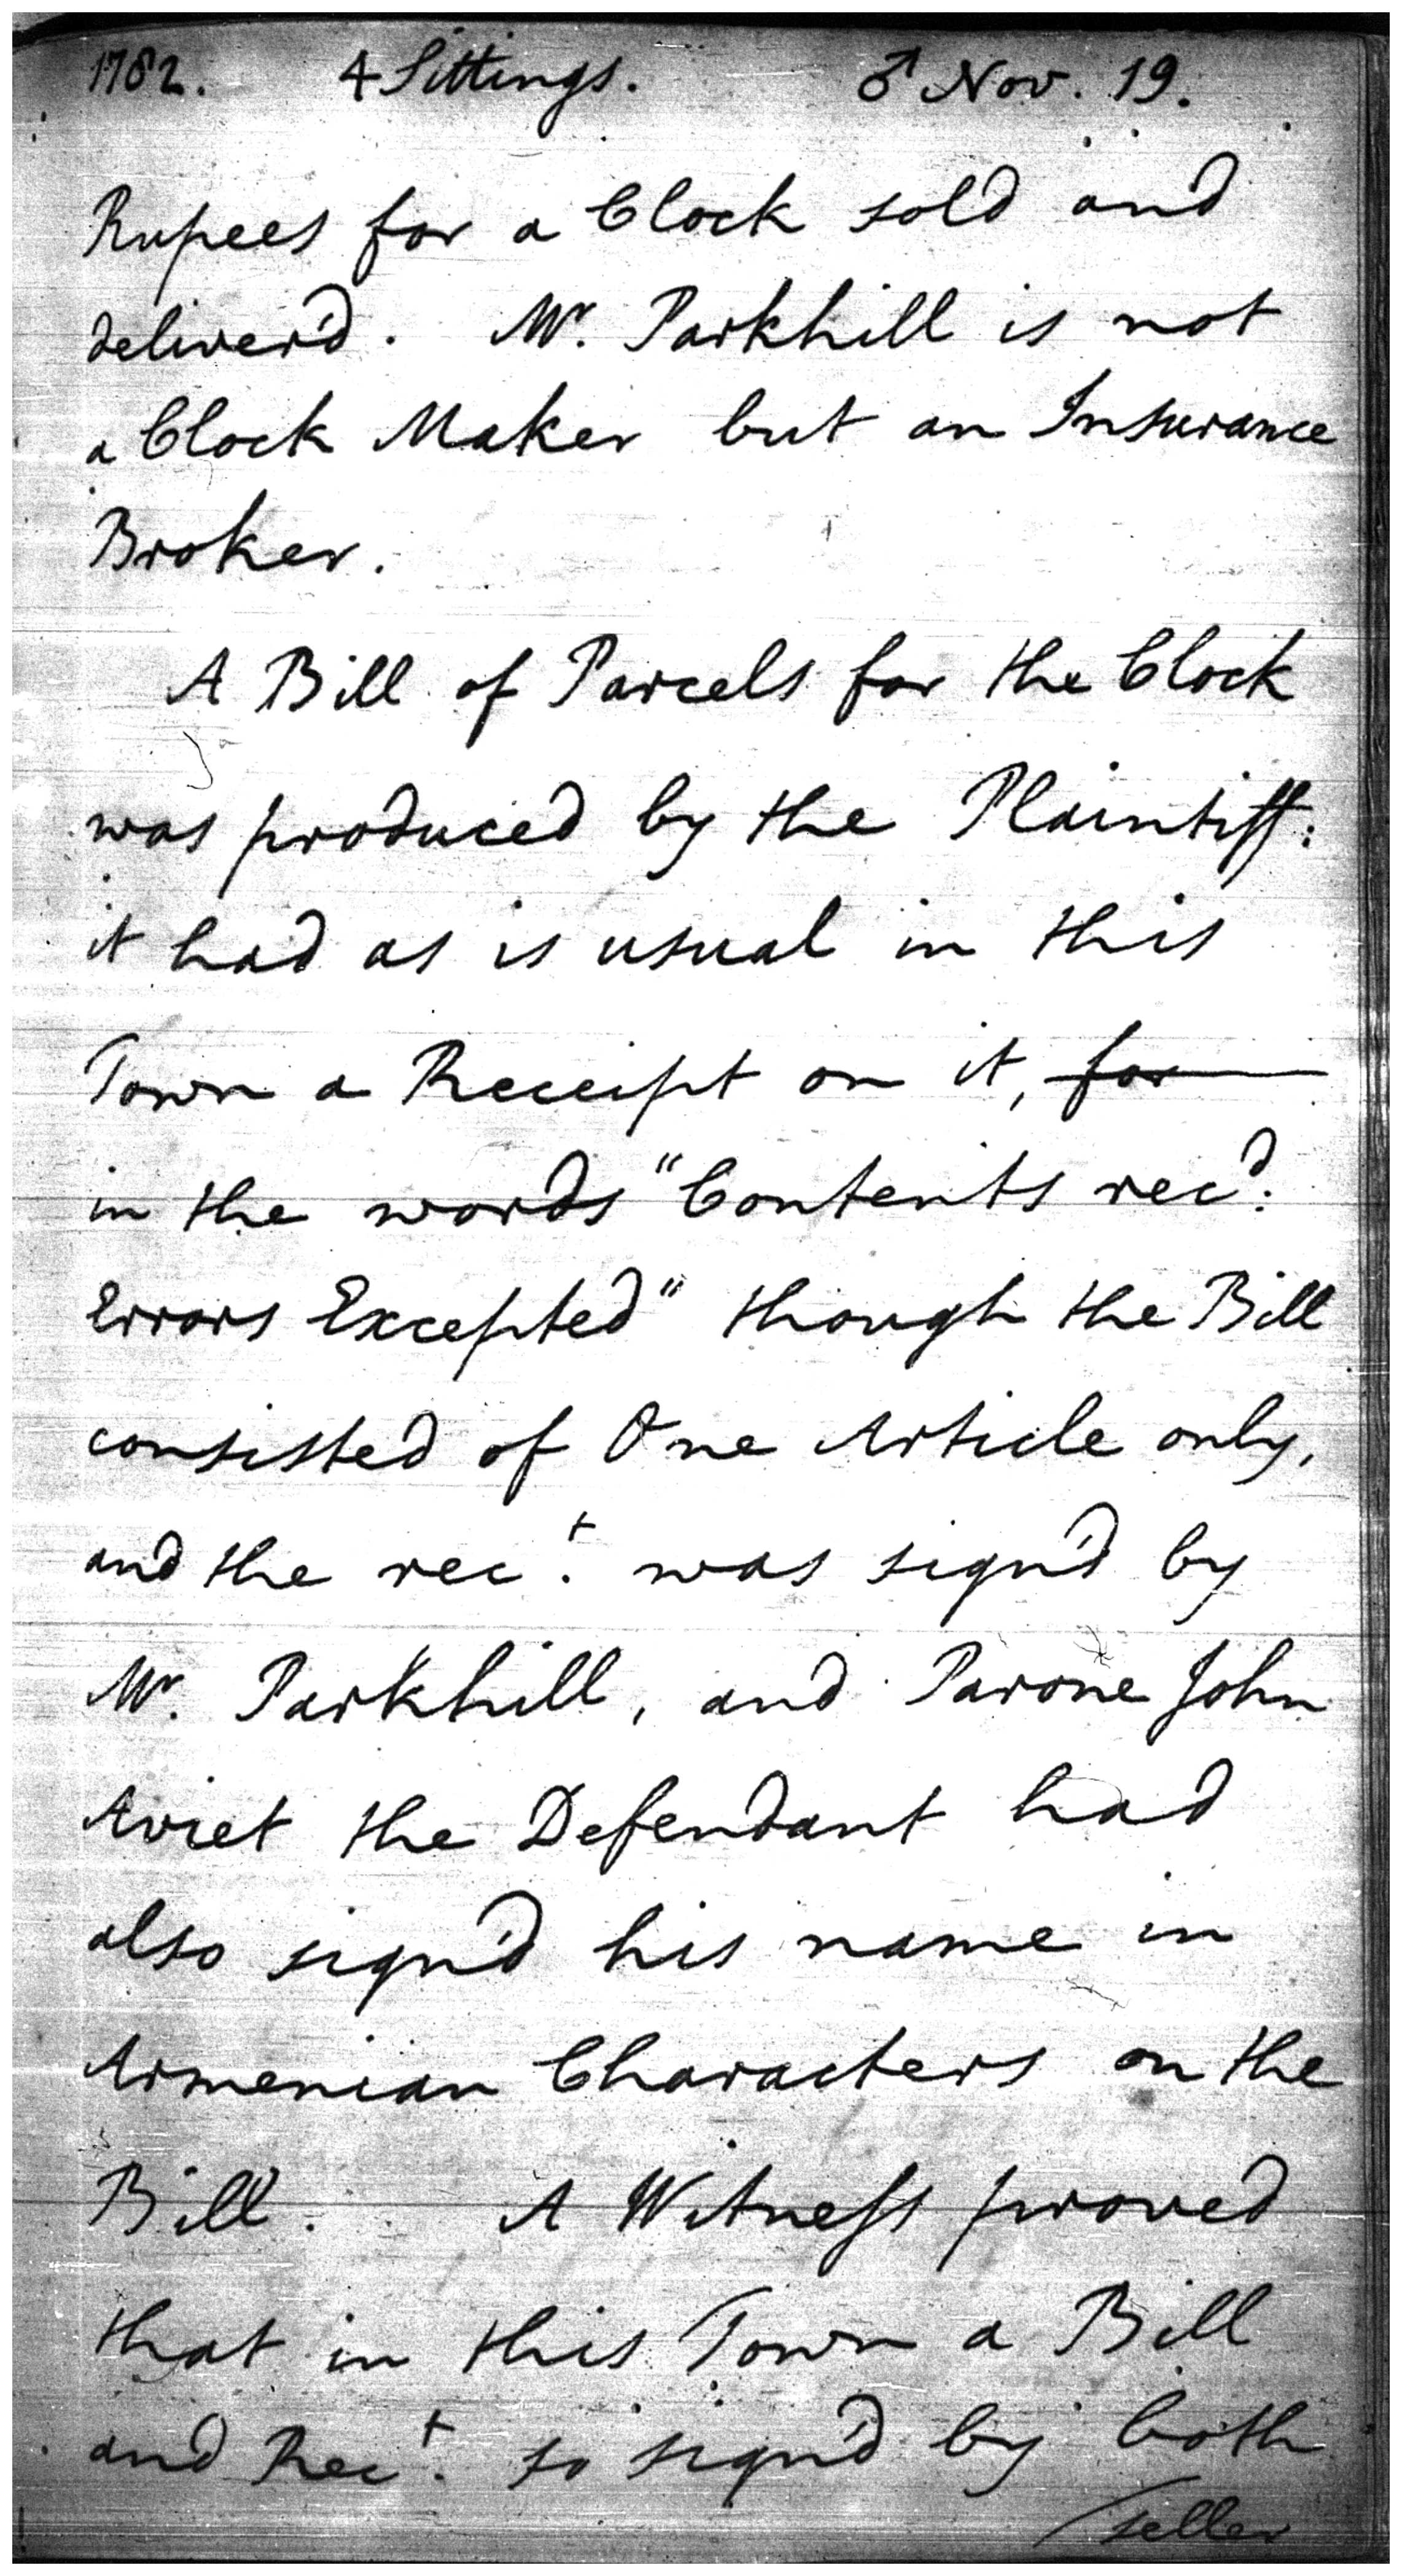 1782. 4 Sittings. ♂ Nov. 19.
Rupees for a Clock sold and
deliver'd. Mr. Parkhill is not
a Clock Maker but an Insurance
Broker.
A Bill of Parcels for the Clock
was produced by the Plaintiff:
it had as is usual in this
Town a Receipt on it, for
in the words "Contents recd.
Errors Excepted" though the Bill
consisted of One Article only,
and the rect. was sign'd by
Mr. Parkhill, and Parone John
Aviet the Defendant had
also sign'd his name in
Armenian Characters on the
Bill. A Witness proved
that in this Town a Bill
and Rect. so sign'd by both
/seller